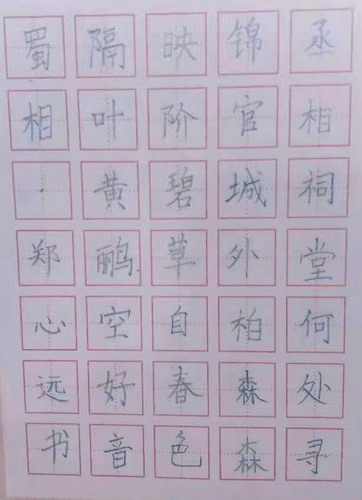 丞相祠堂何处寻
锦官城外柏森森
映阶碧草自春色
隔叶黄鹂空好音
蜀相·郑心远书